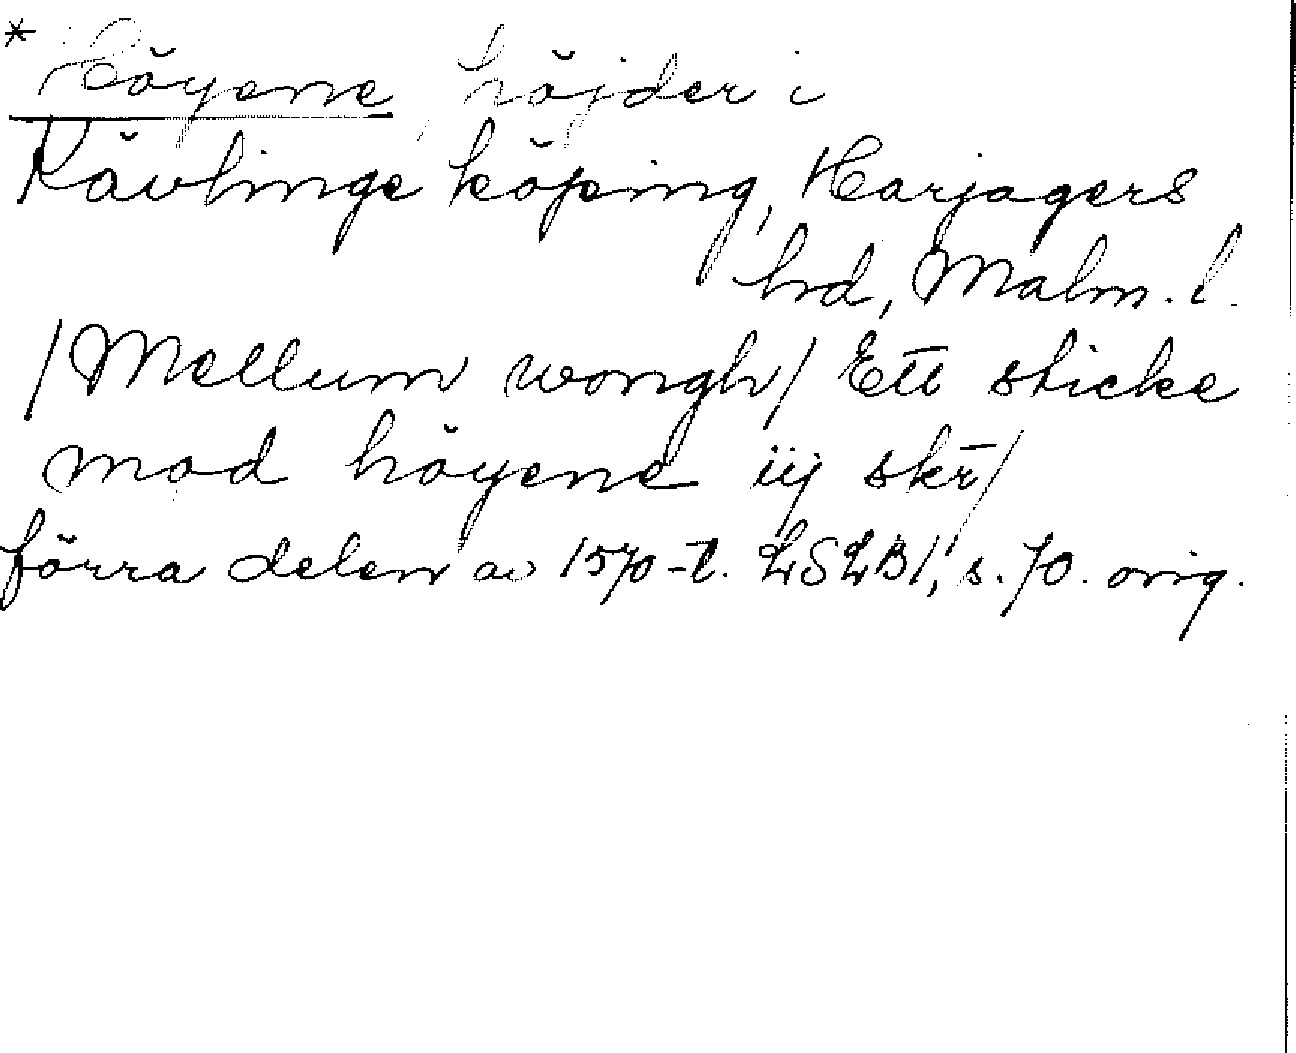 * Höyene, höjder i
Kävlinge köping, Harjagers
hrd, Malm. l.
/Mellum wongh/ Ett sticke
mod höyene iij skr̄/
förra delen av 1570-t. LSLB1, s. 70. orig.